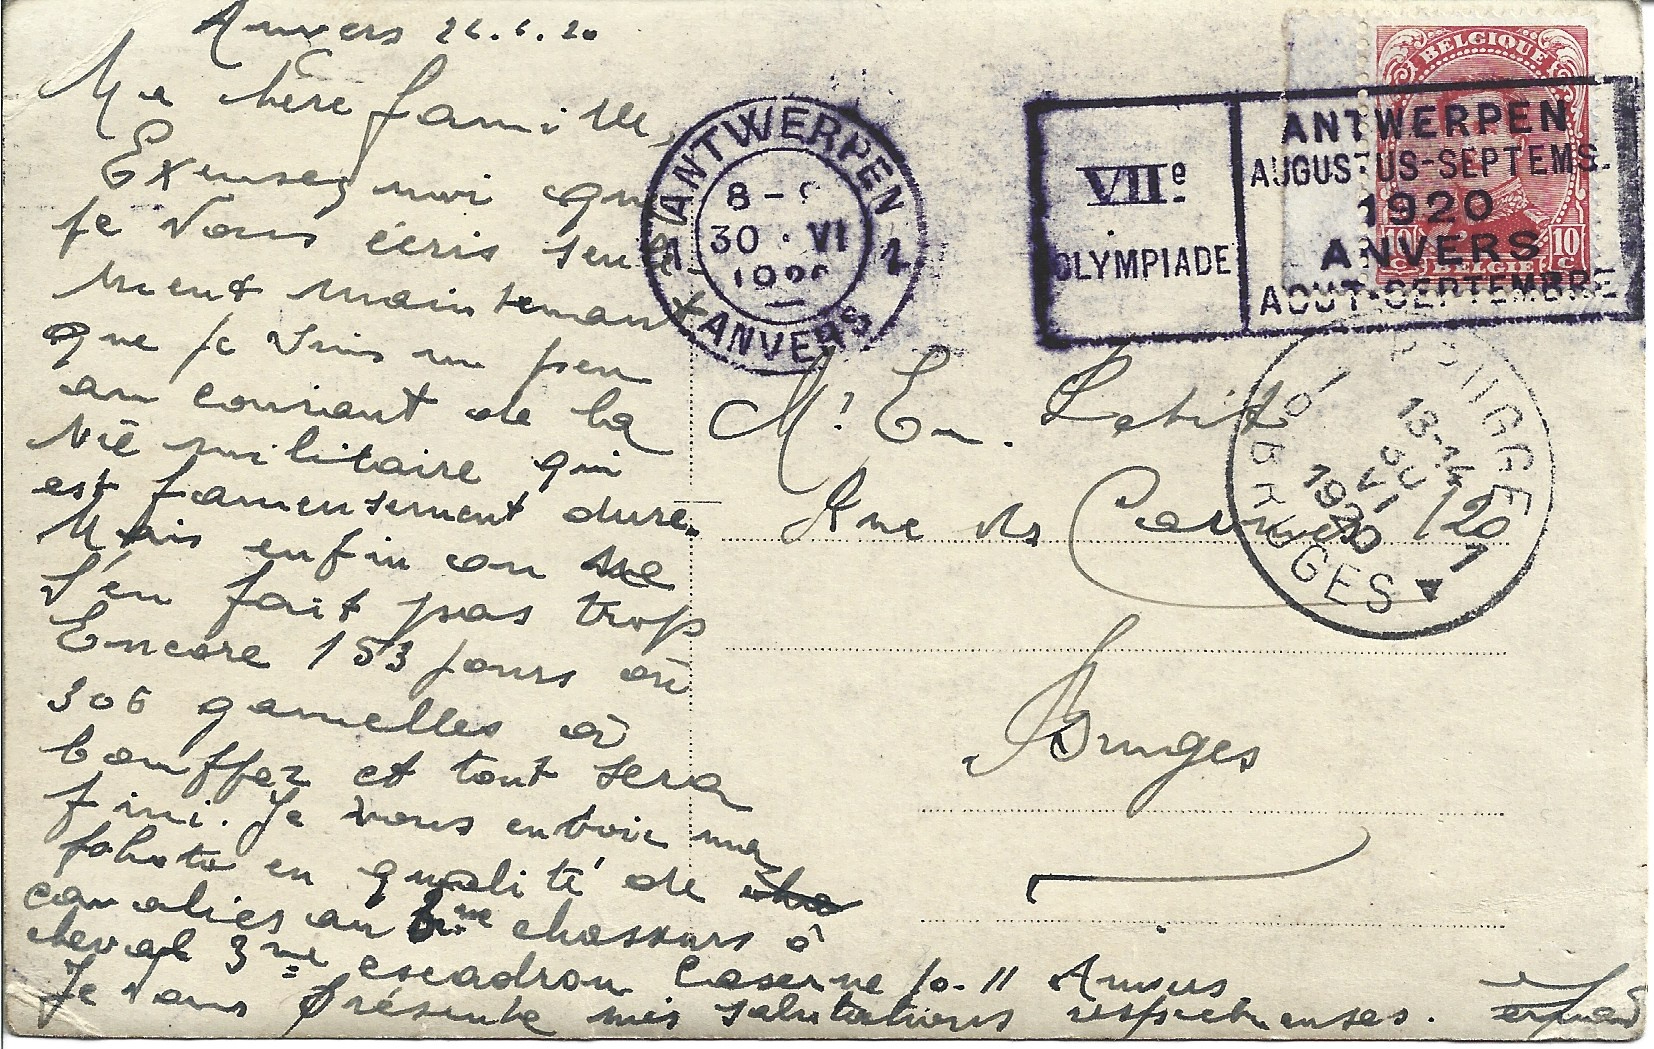 Anvers 26.6.20
Ma chère famille,
Excusez moi que
je vous écris seule
ment maintenant
que je suis un peu
au courant de la
vie militaire qui
est fameusement dure.
Mais enfin on ne
s'en fait pas trop
Encore 153 jours où
306 gamelles à
bouffez et tout sera
fini. Je vous envoie une
fohoto en qualité de
cavalier au eme chasseurs à
cheval 3me escadron Caserne 10-11 Anvers
Je vous présente mes salutations respectueuses.
ANTWERPEN
8-9
1 30·VI 1
1920
ANVERS
VIIe
OLYMPIADE
ANTWERPEN
AUGUSTUS-SEPTEMB.
1920
ANVERS
AOUT-SEPTEMBRE
BELGIQUE
10 c 10 c
BELGIË
BRUGGE
13-14
30
VI
1920
1 BRUGES 1
Mr. Em. Petit
Rue des Carmes 120
Bruges